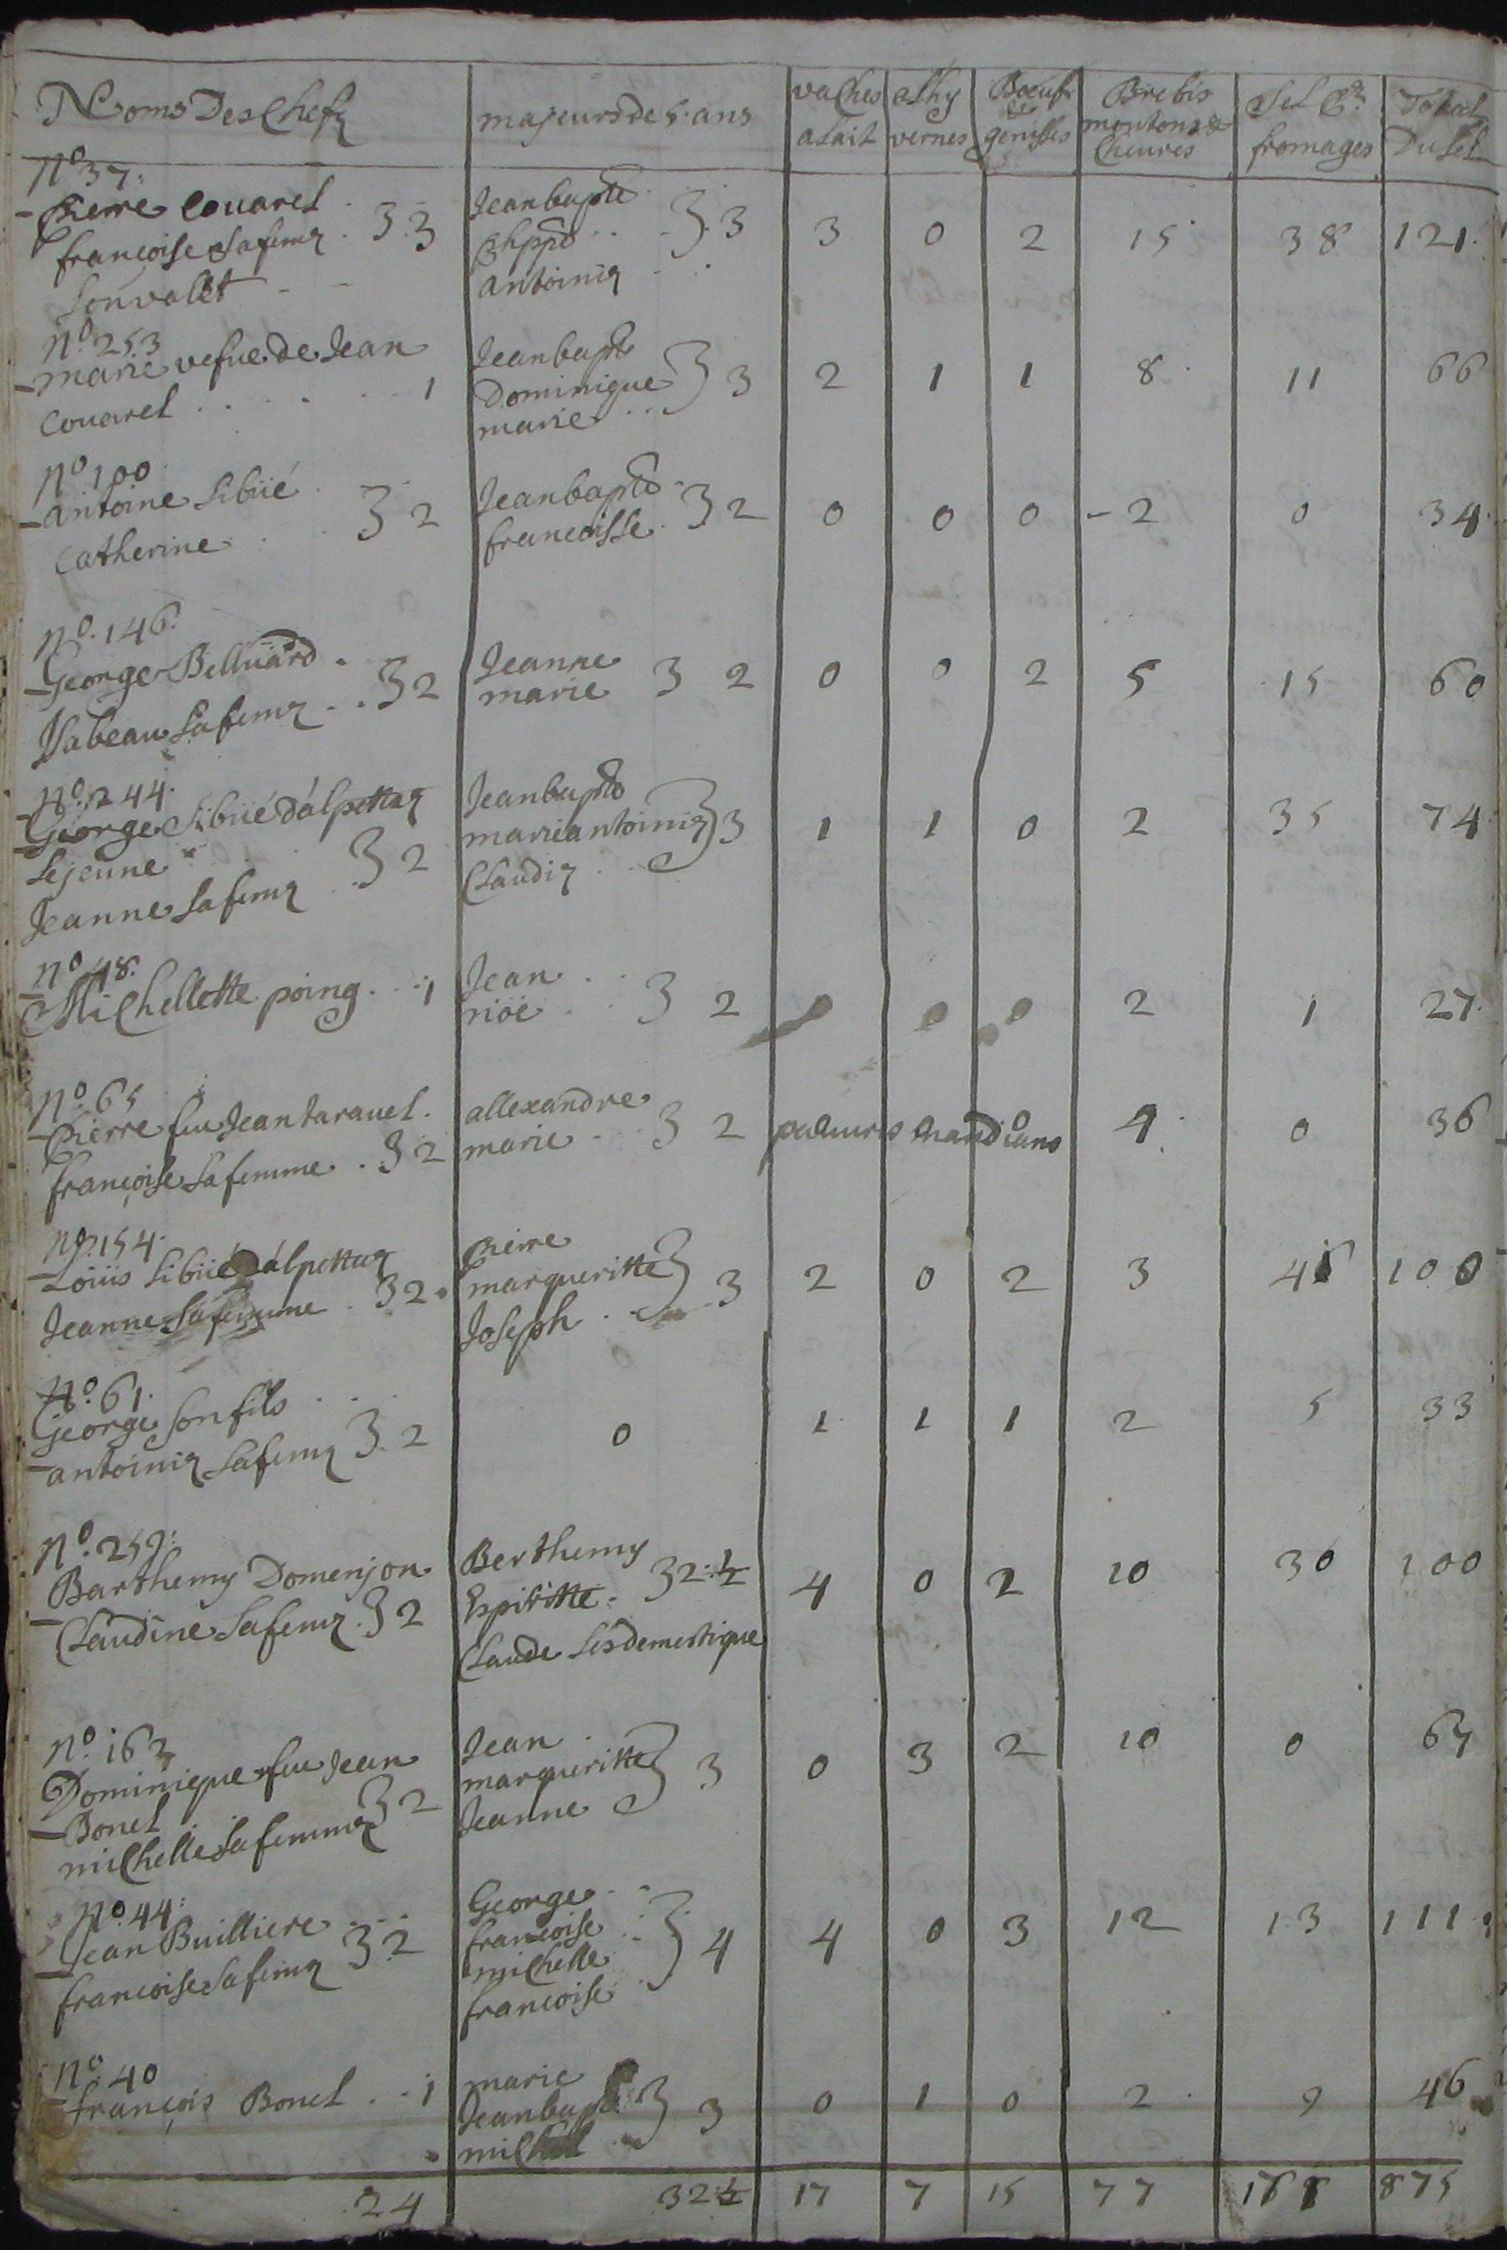 Noms Des Chefz | majeurs de 5 ans | vaches alait | alhy vernes | Boeufs & genisses | Brebis moutons & Cheures | Sel Pr fromages | Total Du Sel
No 37:
Pierre Couarel
francoise Safemz . 3 3
Sonvalet
Jeanbapte
Phppe
antoiniz
3 3 | 3 | 0 | 2 | 15 | 38 | 121
No 253
marie vefue de Jean
Couarel . . . . 1
Jeanbapte
Dominique
marie
3 3 | 2 | 1 | 1 | 8 | 11 | 66
No 100
antoine Sibüé
Catherine 3 2
Jeanbapte
francoisse 3 2 | 0 | 0 | 0 | - 2 | 0 | 34
No. 146.
George Belluard
Ysabeau Safemz . . 3 2
Jeanne
marie 3 2 | 0 | 0 | 2 | 5 | 15 | 60
No. 244.
George Sibüé dalpettaz
Lejeune
Jeanne Safemz 3 2
Jeanbapte
marieantoiniz
Claudiz
3 3 | 1 | 1 | 0 | 2 | 35 | 74
No 48.
Michellette poing . . 1
Jean
noë 3 2 | 0 | 0 | 0 | 2 | 1 | 27
No. 65
Pierre feu Jean taravel.
françoise Safemme . 3 2
allexandre
marie 3 2 | pauures mandians | 4 | 0 | 36
No. 154.
Loüis Sibüé dálpettaz
Jeanne Safemme . 3 2
Pierre
margueritte
Joseph
3 3 | 2 | 0 | 2 | 3 | 100
No. 61.
George Son fils
antoiniz Safemz 3 2
0 | 1 | 1 | 1 | 2 | 5 | 33
No. 259:
Barthemy Domenjon
Claudine Safemz . 3 2
Berthemy
Espiritte 3 2 ½
Claude Lesdemestique
4 | 0 | 2 | 10 | 30 | 100
No. 163
Dominique feu Jean
Bonel
michelle Safemmz 3 2
Jean
margueritte
Jeanne
3 3 | 0 | 3 | 2 | 10 | 0 | 67
No. 44:
Jean Buillière
francoise Safemz 3 2
George
francoise
michelle
francoise
3 4 | 4 | 0 | 3 | 12 | 13 | 111
No. 40
françois Bonel . . 1
marie
Jeanbapte
michel
3 3 | 0 | 1 | 0 | 2 | 9 | 46
24 | 32 ½ | 17 | 7 | 15 | 77 | 875